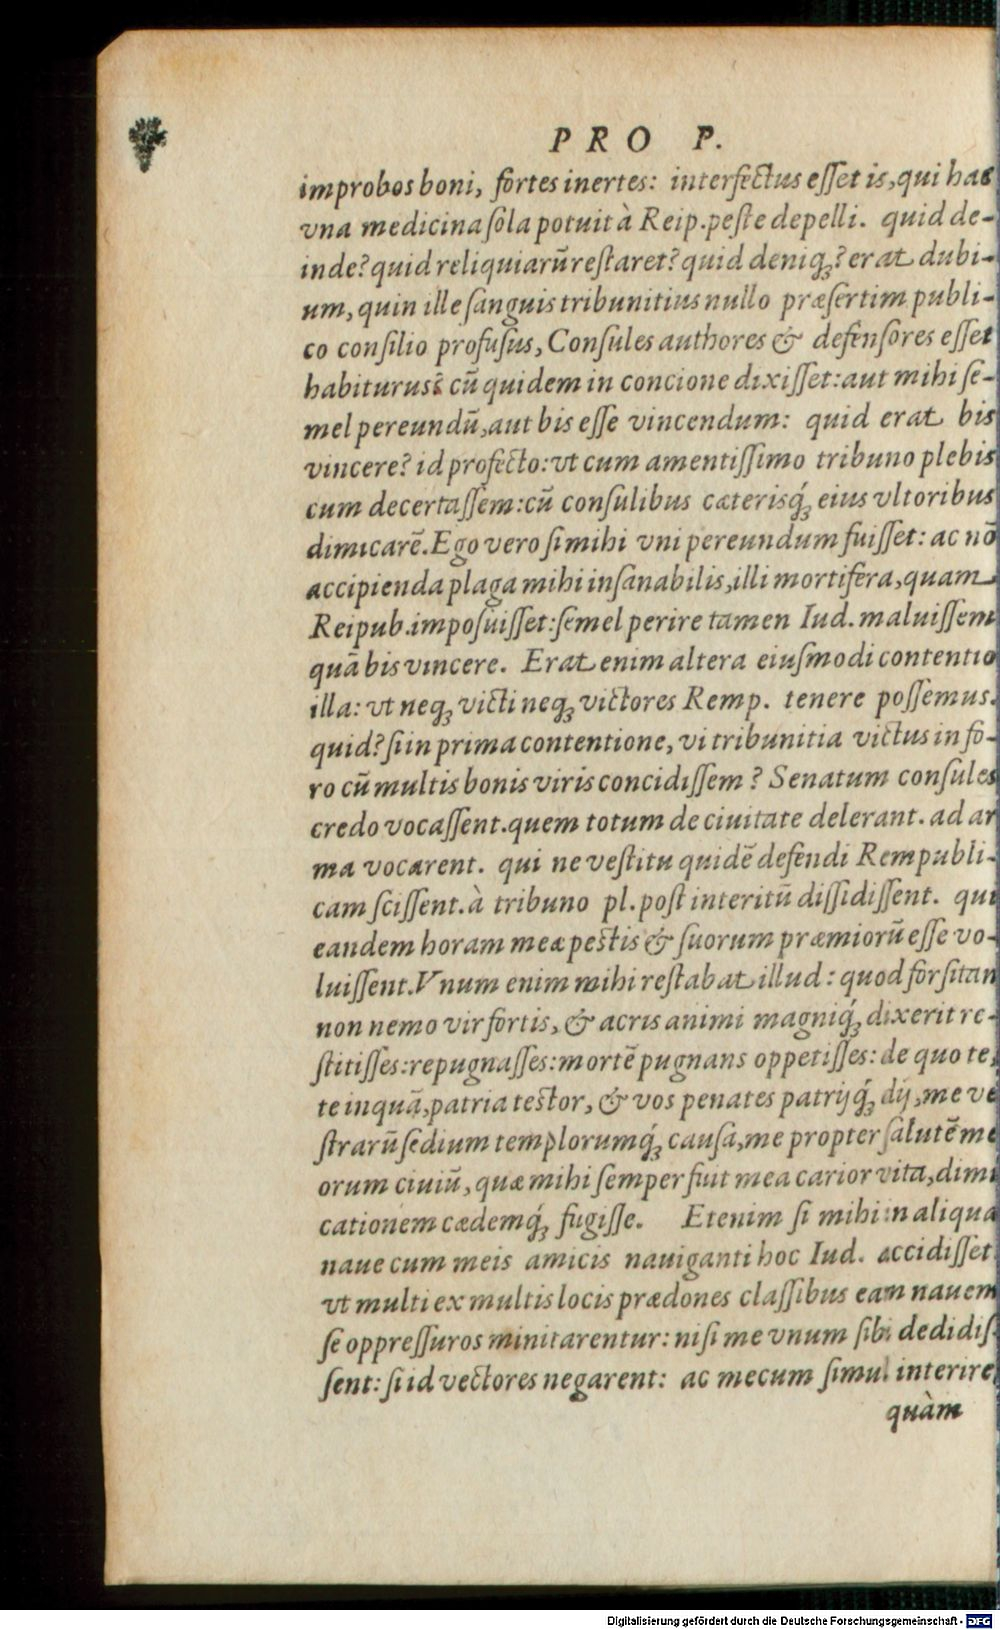 PRO P.
improbos boni, fortes inertes: interfectus eſſet is, qui hac
vna medicina ſola potuit à Reip. peſte depelli. quid de-
inde? quid reliquiarũ reſtaret? quid deniqꝫ? erat dubi-
um, quin ille ſanguis tribunitius nullo præſertim publi-
co conſilio profuſus, Conſules authores & defenſores eſſet
habiturus: cũ quidem in concione dixiſſet: aut mihi ſe-
mel pereundũ, aut bis eſſe vincendum: quid erat bis
vincere? id profecto: vt cum amentiſſimo tribuno plebis
cum decertaſſem: cũ conſulibus cæterisq́ꝫ eius vltoribus
dimicarẽ. Ego vero ſi mihi vni pereundum fuiſſet: ac nõ
accipienda plaga mihi inſanabilis, illi mortifera, quam
Reipub. impoſuiſſet: ſemel perire tamen Iud. maluiſſem
quã bis vincere. Erat enim altera eiuſmodi contentio
illa: vt neqꝫ victi neqꝫ victores Remp. tenere poſſemus.
quid? ſi in prima contentione, vi tribunitia victus in fo-
ro cũ multis bonis viris concidiſſem? Senatum conſules
credo vocaſſent. quem totum de ciuitate delerant. ad ar
ma vocarent. qui ne veſtitu quidẽ defendi Rempubli-
cam ſciſſent. à tribuno pl. poſt interitũ diſſidiſſent. qui
eandem horam meæ peſtis & ſuorum præmiorũ eſſe vo-
luiſſent. Vnum enim mihi reſtabat illud: quod forſitan
non nemo vir fortis, & acris animi magniq́ꝫ dixerit re-
ſtitiſſes: repugnaſſes: mortẽ pugnans oppetiſſes: de quo te,
te inquã, patria teſtor, & vos penates patrijq́ꝫ dij, me ve
ſtrarũ ſedium templorumq́ꝫ cauſa, me propter ſalutẽ me
orum ciuiũ, quæ mihi ſemper fuit mea carior vita, dimi
cationem cædemq́ꝫ fugiſſe. Etenim ſi mihi in aliqua
naue cum meis amicis nauiganti hoc Iud. accidiſſet
vt multi ex multis locis prædones claſſibus eam nauem
ſe oppreſſuros minitarentur: niſi me vnum ſibi dedidiſ-
ſent: ſi id vectores negarent: ac mecum ſimul interire
quàm
Digitalisierung gefördert durch die Deutsche Forschungsgemeinschaft - DFG